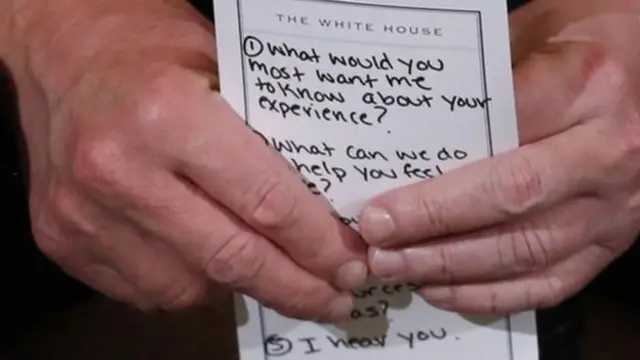 THE WHITE HOUSE
① What would you
most want me
to know about your
experience?
What can we do
help you feel
as?
⑤ I hear you.